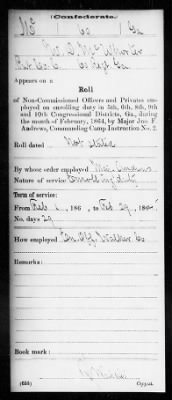 Confederate.
Mc 60 Ga
Geo. D. McWhorter
Pvt Co. C. 60 Regt Ga.
Appears on a
Roll
of Non-Commissioned Officers and Privates employed on enrolling duty in 5th, 6th, 8th, 9th and 10th Congressional Districts, Ga., during the month of February, 1864, by Major Jno. F. Andrews, Commanding Camp Instruction No. 2.
Roll dated Not stated
By whose order employed Maj. Andrews
Nature of service Enrolling duty
Term of service:
From Feb 1, 186 , to Feb 29, 186
No. days 29
How employed En. Off. Walker Co
Remarks:
Book mark:
(655) Copyist.